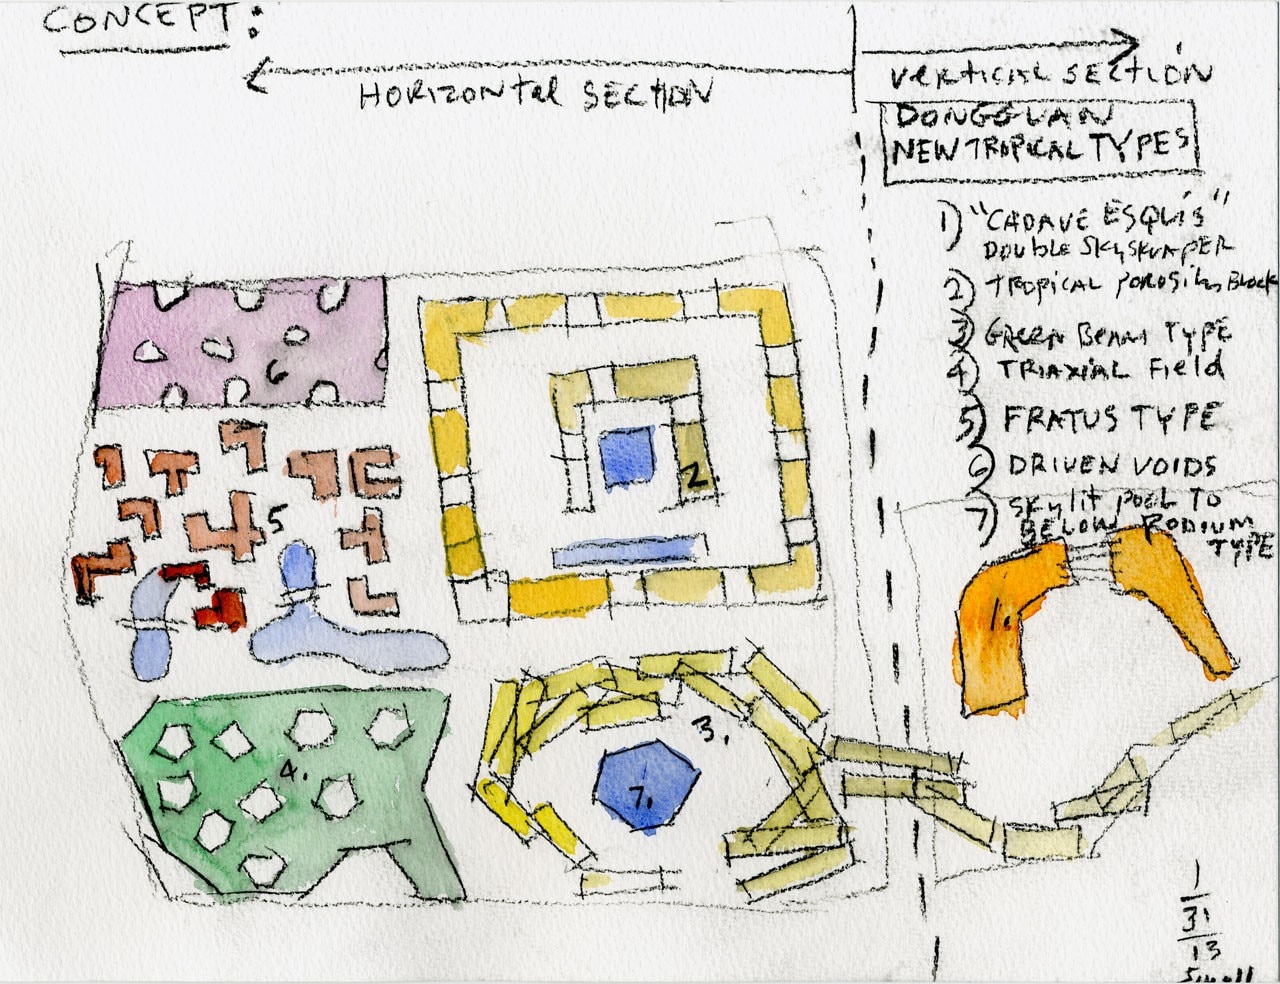 CONCEPT:
HORIZONTAL SECTION
VERTICAL SECTION
DONGGUAN
NEW TROPICAL TYPES
1) "CADAVE ESQUIS"
DOUBLE SKYSKRAPER
2) TROPICAL POROSITY BLOCK
3) GREEN BEAM TYPE
4) TRIAXIAL FIELD
5) FRATUS TYPE
6) DRIVEN VOIDS
7) SKYLIT POOL TO
BELOW PODIUM
TYPE
6
2
5
1.
3.
4.
7.
1
31
13
Small